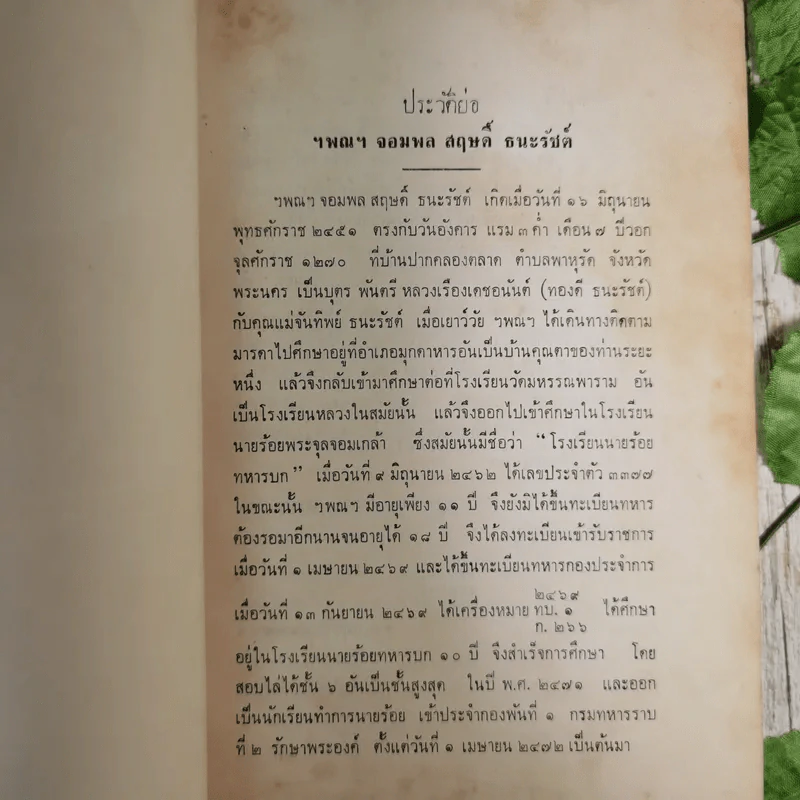 ประวัติย่อ
ฯพณฯ จอมพล สฤษดิ์ ธนะรัชต์
ฯพณฯ จอมพล สฤษดิ์ ธนะรัชต์ เกิดเมื่อวันที่ ๑๖ มิถุนายน
พุทธศักราช ๒๔๕๑ ตรงกับวันอังคาร แรม ๓ ค่ำ เดือน ๗ ปีวอก
จุลศักราช ๑๒๗๐ ที่บ้านปากคลองตลาด ตำบลพาหุรัด จังหวัด
พระนคร เป็นบุตร พันตรี หลวงเรืองเดชอนันต์ (ทองดี ธนะรัชต์)
กับคุณแม่จันทิพย์ ธนะรัชต์ เมื่อเยาว์วัย ฯพณฯ ได้เดินทางติดตาม
มารดาไปศึกษาอยู่ที่อำเภอมุกดาหารอันเป็นบ้านคุณตาของท่านระยะ
หนึ่ง แล้วจึงกลับเข้ามาศึกษาต่อที่โรงเรียนวัดมหรรณพาราม อัน
เป็นโรงเรียนหลวงในสมัยนั้น แล้วจึงออกไปเข้าศึกษาในโรงเรียน
นายร้อยพระจุลจอมเกล้า ซึ่งสมัยนั้นมีชื่อว่า “โรงเรียนนายร้อย
ทหารบก” เมื่อวันที่ ๙ มิถุนายน ๒๔๖๒ ได้เลขประจำตัว ๓๓๗๗
ในขณะนั้น ฯพณฯ มีอายุเพียง ๑๑ ปี จึงยังมิได้ขึ้นทะเบียนทหาร
ต้องรอมาอีกนานจนอายุได้ ๑๘ ปี จึงได้ลงทะเบียนเข้ารับราชการ
เมื่อวันที่ ๑ เมษายน ๒๔๖๙ และได้ขึ้นทะเบียนทหารกองประจำการ
๒๔๖๙
เมื่อวันที่ ๑๓ กันยายน ๒๔๖๙ ได้เครื่องหมาย ทบ. ๑ ได้ศึกษา
ก. ๒๖๖
อยู่ในโรงเรียนนายร้อยทหารบก ๑๐ ปี จึงสำเร็จการศึกษา โดย
สอบไล่ได้ชั้น ๖ อันเป็นชั้นสูงสุด ในปี พ.ศ. ๒๔๗๑ และออก
เป็นนักเรียนทำการนายร้อย เข้าประจำกองพันที่ ๑ กรมทหารราบ
ที่ ๒ รักษาพระองค์ ตั้งแต่วันที่ ๑ เมษายน ๒๔๗๒ เป็นต้นมา